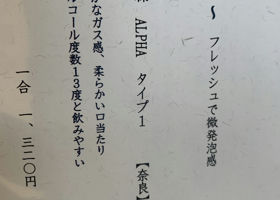 ～ フレッシュで微発泡感
ALPHA タイプ1 【奈良】
かなガス感、柔らかい口当たり
コール度数13度と飲みやすい
一合 一、三二〇円